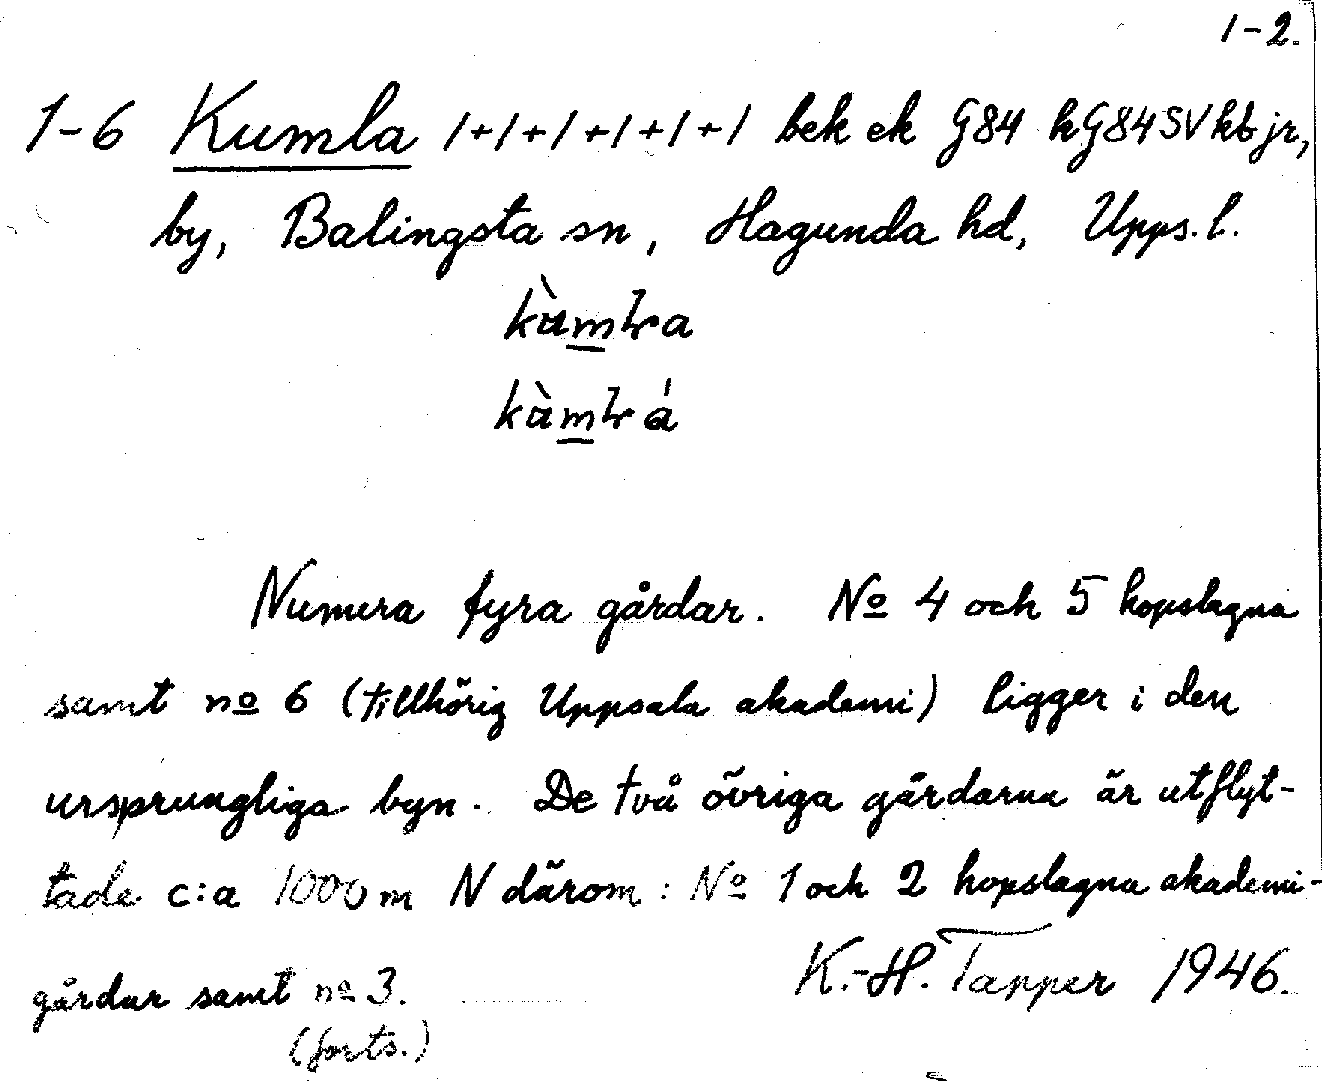 1-2.
1-6 Kumla 1+1+1+1+1+1 bek ek G84 kG84SVkbjr,
by, Balingsta sn, Hagunda hd, Upps. l.
Numera fyra gårdar. No 4 och 5 hopslagna
samt no 6 (tillhörig Uppsala akademi) ligger i den
ursprungliga byn. De två övriga gårdarna är utflyt-
tade c:a 1000 m N därom: No 1 och 2 hopslagna akademi-
gårdar samt no 3.
K.-H. Tapper 1946.
(forts.)